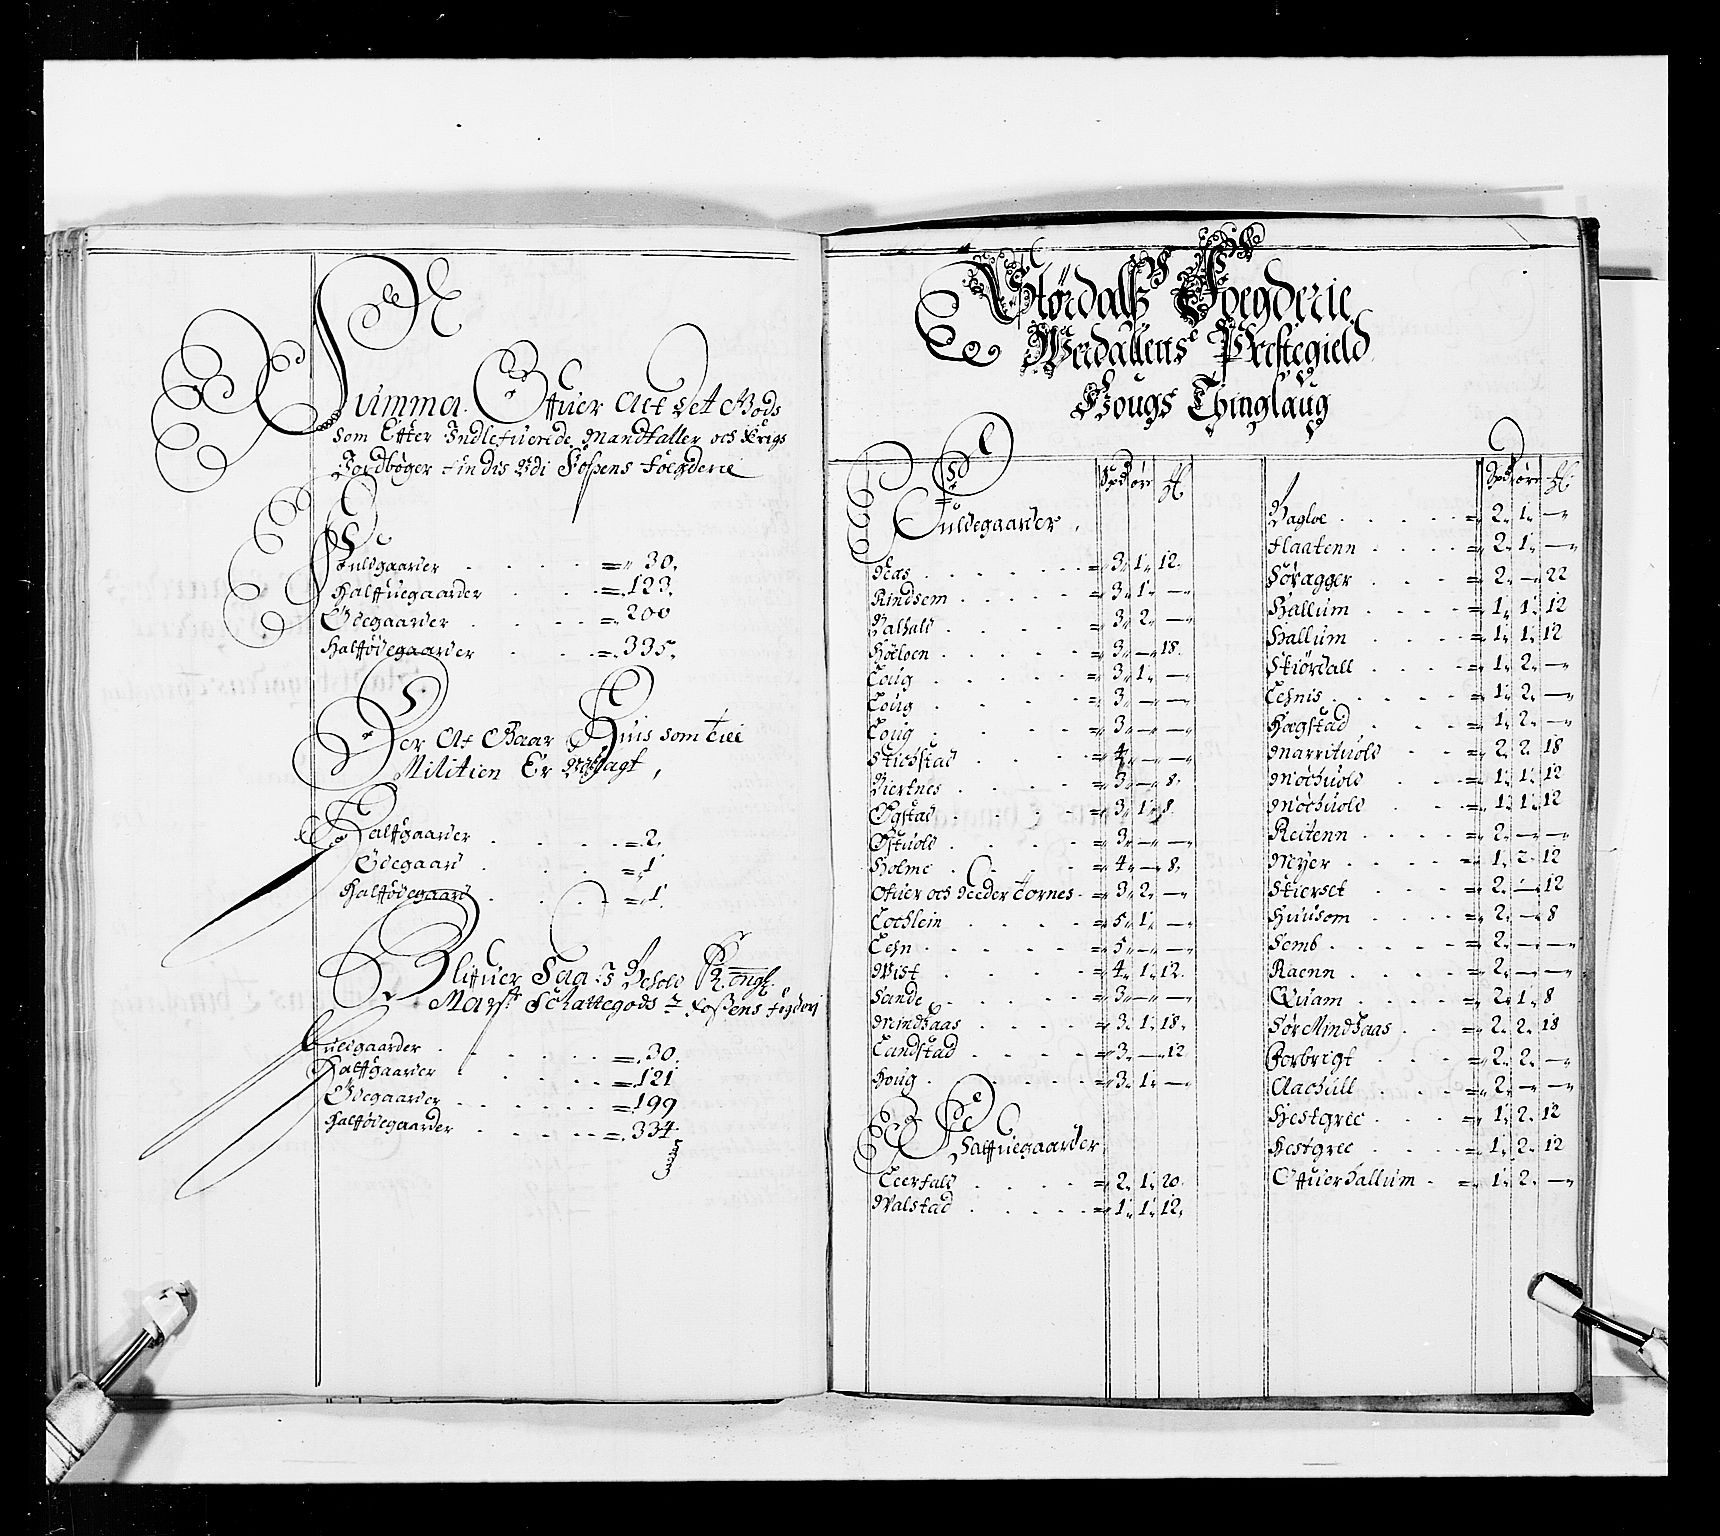 Summa Offuer Alt det Gods
som Efter Indlefuerede Mandtaller och Krigs
Jordbøger findis Udi Foßens Foegderie
Fuldgaarder = 30.
Halffuegaarder = 123.
Ødegaarder = 200
Halfødegaarder = 335.
Der Af Baar Huis som till
Militien Er Udlagt,
Halffgaarder = 2.
Ødegaard = 1
Halfødegaard = 1.
Bliffuer Saa I Behold Kongl.
Mayst. Schattegods I Foßens Fogderj
Fuldgaarder = 30.
Halffgaarder = 121
Ødegaarder = 199
Halfødegaarder = 334.
Størdalß Foegderie
Werdallens Prestegield
Hougs Thinglaug
Spd øre
Fuldegaarder,
Aas = 3. 1. 12.
Rindsem = 3. 1. —
Balhald = 3. 2. —
Høeloen = 3. — 18.
Loug = 3. 1. —
Loug = 3. — —
Loug = 3. — —
Stichstad = 4. — —
Biertnes = 3. — 8.
Øgstad = 3. 1. 8
Østuold = 3. — —
Holme = 4. — 8.
Ofuer och Neder Tornes = 3. 2. —
Lochlein = 5. 1. —
Lehn = 5. — —
Wist = 4. 1. 12.
Sande = 3. — —
Mindhaas = 3. 1. 18.
Landstad = 3. — 12
Houg = 3. 1. —
Halffuegaarder
Leerfald = 2. 1. 20.
Walstad = 1. 1. 12.
Spd øre
Hagloe = 2. 1. —
Flaatenn = 2. 1. —
Søragger = 2. — 22
Hallum = 1. 1. 12
Hallum = 1. 1. 12
Skiørdall = 1. 2. —
Lehnis = 1. 2. —
Hagstad = 1. 2. —
Marrituold = 2. 2. 18
Mochuold = 1. 1. 12
Mochuold = 1. 1. 12
Reitenn = 2. — —
Meyer = 1. 2. 12
Stierset = 2. — 12
Huusom = 2. — 8
Semb = 2. — —
Raenn = 2. — —
Quam = 2. 1. 8
Sør Mindhaas = 2. 2. 18
Borbrigt = 2. 2. —
Aachull = 2. — —
Hestgree = 1. 2. 12
Hestgree = 1. 2. 12
Offuerhallum = 1. 2. —